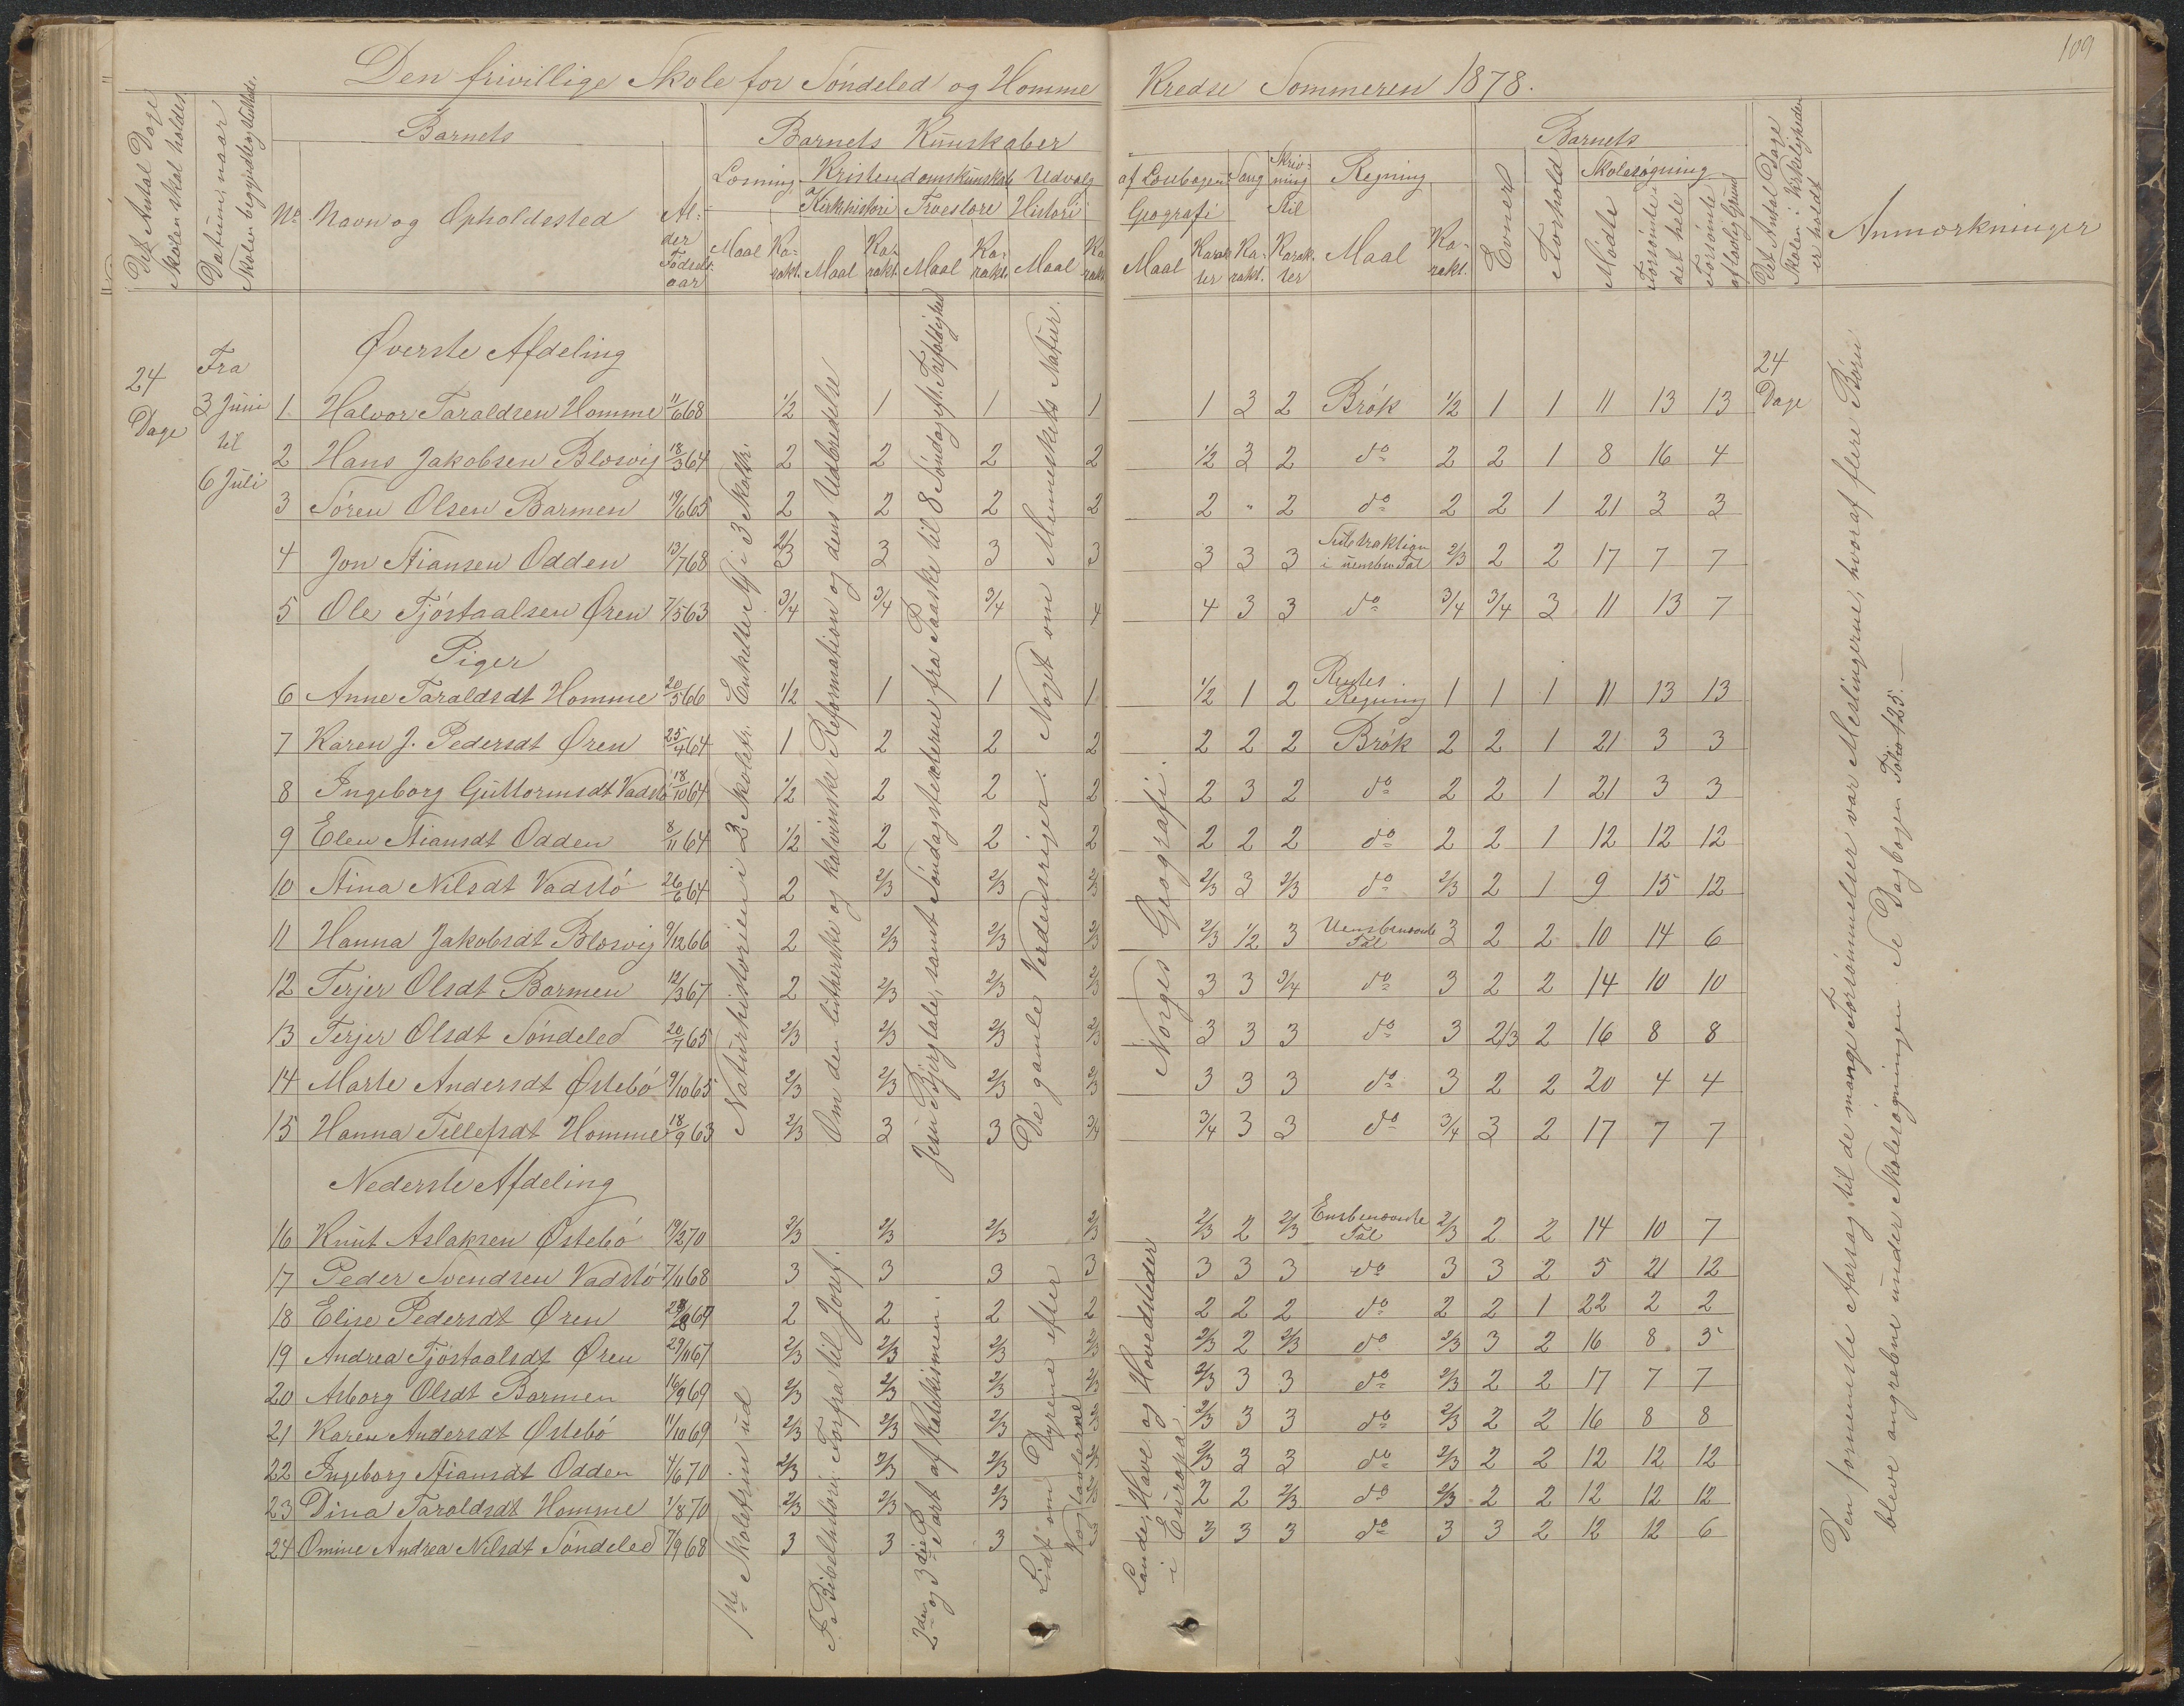 109
Den frivillige Skole for Söndeled og Homme Kredse Sommeren 1878.
Det Antal Dage Skolen skal holdes.
Datum, naar Skolen begyndte og sluttede.
Barnets
Barnets Kunskaber
Barnets
Det Antal Dage Skolen i Virkeligheden er holdt
Anmærkninger
No Navn og Opholdssted
Alder Födselsaar
Læsning Kristendomskunskab Udvalg af Læsebogen Sang Skrivning Regning
Kirkehistori Troeslære Histori Geografi Stil
Maal Karakt. Maal Karakt. Maal Karakt. Maal Karakt. Maal Karakter Karakt. Karakter Maal Karakt.
Evner Forhold Skolesögning
Mödte Forsömte det hele Forsömte af lovlig Grund
24 Dage
Fra 3 Juni til 6 Juli
24 Dage
Øverste Afdeling
1 Halvor Taraldsen Homme 11/6 68 1/2 1 1 1 1 3 2 Brök 1/2 1 1 11 13 13
2 Hans Jakobsen Blæsvig 18/3 64 2 2 2 2 1/2 3 2 do 2 2 1 8 16 4
3 Sören Olsen Barmen 19/6 65 2 2 2 2 2 " 2 do 2 2 1 21 3 3
4 Jon Stiansen Odden 13/7 68 2/3 3 3 3 3 3 3 Subtraktion i uensben. Tal 2/3 2 2 17 7 7
5 Ole Tjöstaalsen Øren 7/5 63 3/4 3/4 3/4 4 4 3 3 do 3/4 3/4 3 11 13 7
Piger
6 Anne Taraldsdt Homme 20/5 66 1/2 1 1 1 1/2 1 2 Rentes Regning 1 1 1 11 13 13
7 Karen J. Pedersdt Øren 25/4 64 1 2 2 2 2 2 2 Brök 2 2 1 21 3 3
8 Ingeborg Guttormsdt Vadstö 18/10 64 1/2 2 2 2 2 3 2 do 2 2 1 21 3 3
9 Elen Stiansdt Odden 8/11 64 1/2 2 2 2 2 2 2 do 2 2 1 12 12 12
10 Stina Nilsdt Vadstö 26/6 64 2 2/3 2/3 2/3 2/3 3 2/3 do 2/3 2 1 9 15 12
11 Hanna Jakobsdt Blæsvig 9/12 66 2 2/3 2/3 2/3 2/3 1/2 3 Uensbenævnte Tal 3 2 2 10 14 6
12 Terjer Olsdt Barmen 12/3 67 2 2/3 2/3 2/3 3 3 3/4 do 3 2 2 14 10 10
13 Terjer Olsdt Söndeled 20/7 65 2/3 2/3 2/3 2/3 3 3 3 do 3 2/3 2 16 8 8
14 Marte Andersdt Østebö 9/10 65 2/3 2/3 2/3 2/3 3 3 3 do 3 2 2 20 4 4
15 Hanna Tellefsdt Homme 18/9 63 2/3 3 3 3/4 3/4 3 3 do 3/4 3 2 17 7 7
Nederste Afdeling
16 Knut Aslaksen Østebö 19/2 70 2/3 2/3 2/3 2/3 2/3 2 2/3 Ensbenævnte Tal 2/3 2 2 14 10 7
17 Peder Svendsen Vadstö 7/11 68 3 3 3 3 3 3 3 do 3 3 2 5 21 12
18 Elise Pedersdt Øren 2 2 2 2 2 2 2 do 2 2 1 22 2 2
19 Andrea Tjöstaalsdt Øren 29/11 67 2/3 2/3 2/3 2/3 2/3 2 2/3 do 2/3 3 2 16 8 5
20 Asborg Olsdt Barmen 16/9 69 2/3 2/3 2/3 2/3 2/3 3 3 do 2/3 2 2 17 7 7
21 Karen Andersdt Østebö 11/10 69 2/3 2/3 2/3 2/3 3 3 do 2/3 2 2 16 8 8
22 Ingeborg Stiansdt Odden 4/6 70 2/3 2/3 2/3 2/3 3 3 do 2/3 2 2 12 12 12
23 Dina Taraldsdt Homme 1/8 70 2/3 2/3 2/3 2 2 2/3 do 2/3 2 2 12 12 12
24 Omine Andrea Nilsdt Söndeled 7/9 68 3 3 3 3 3 3 do 3 3 2 12 12 6
Naturhistorien i 2 Skoletr. Enkelte St. i 3 Skoletr.
Om den lutherske og kalvinske Reformation og dens Udbredelse
Jesu Bjergtale, samt Söndagsteksterne fra Paaske til 8 Söndag eft. Trefoldighed
De gamle Verdensriger. Noget om Menneskets Natur.
Norges Geografi.
1ste Skoletrin ud
F. Bibelhistori: Forfra til Josef.
2den og 3die Part af Katekismen.
Lidt om Dyrene efter Vægtavlerne
Lande, Have og Hovedsteder i Europa.
Den fornemste Aarsag til de mange Forsömmelser var Meslingerne, hvoraf flere Börn
bleve angrebne under Skolesögningen. Se Dagbogen Folio 125.